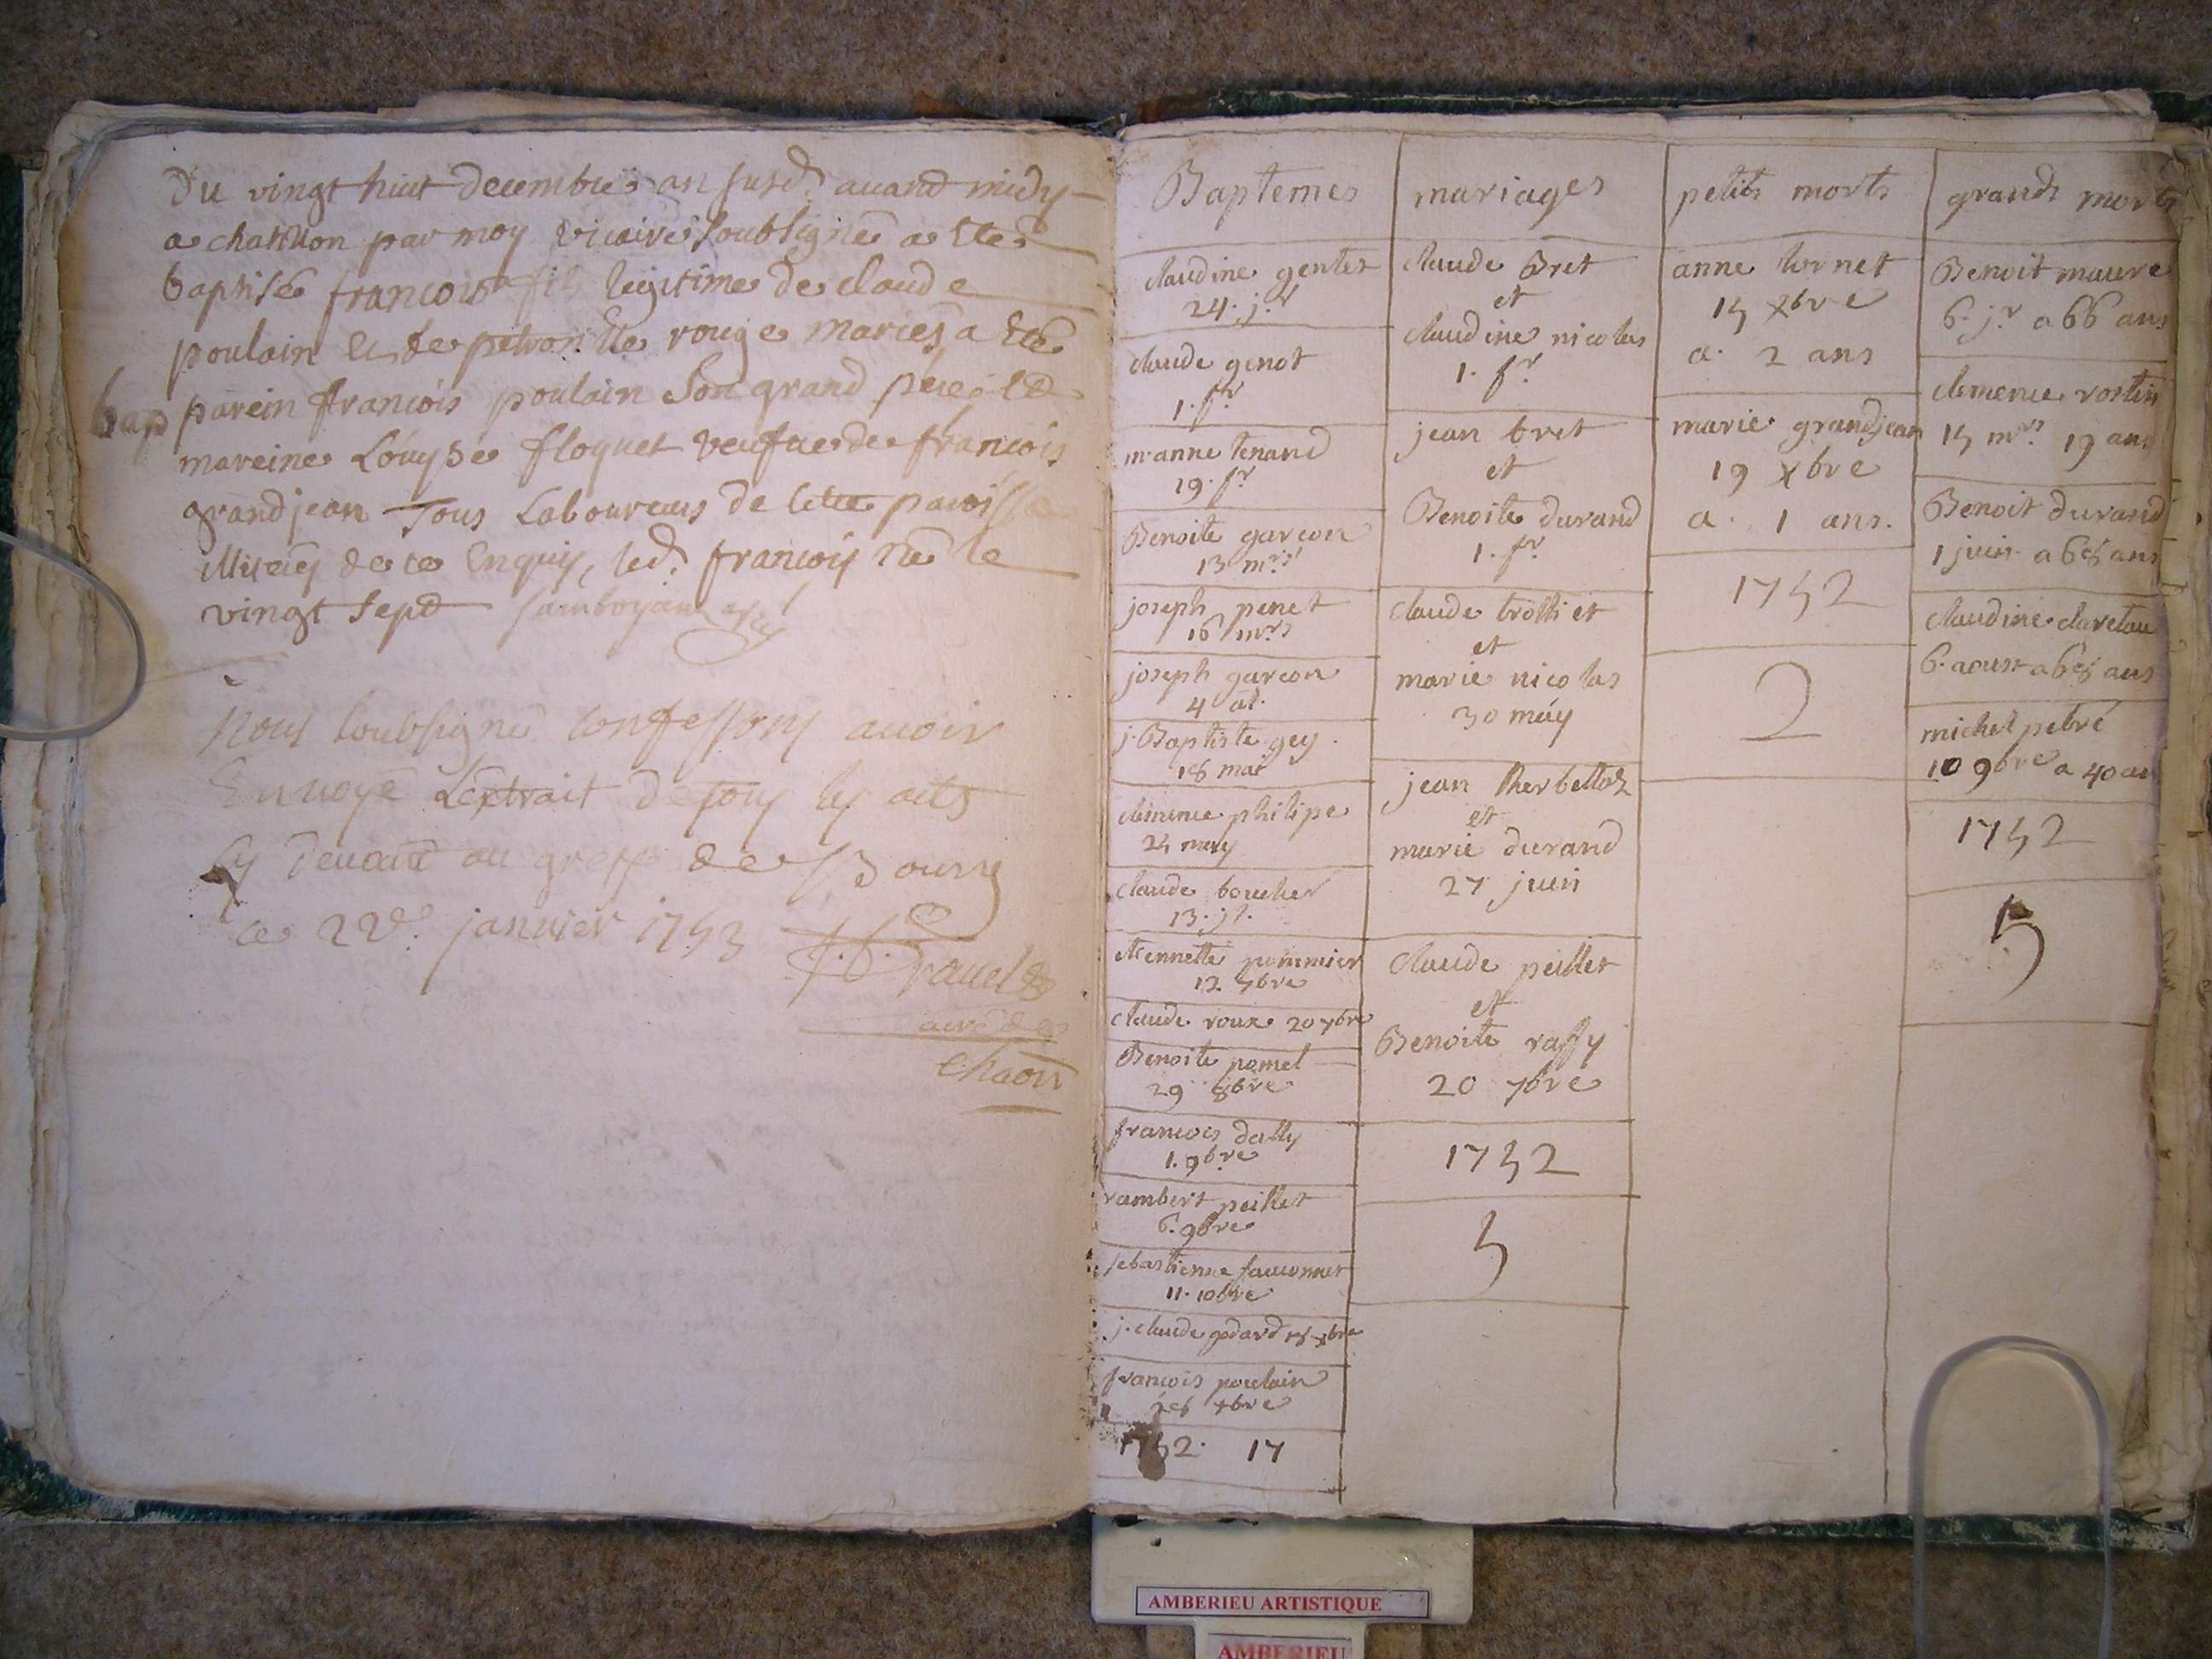 Du vingt huit decembre an susd. auand midy
a chatillon par moy vicaire soubsigné a ete
baptisé francois fils legitime de claude
poulain et de petronille rouge mariés a ete
bap parein francois poulain son grand pere et
mareine Louyse floquet veufue de francois
grandjean Tous Laboureurs de cette paroisse
Illiterés de ce Enquis, led. francois né le
vingt sept
Nous soubsigné confessons auoir
Enuoyé L'extrait de tous les acts
cy deuand au greffe de Bourg
ce 22e. januier 1753
Baptemes
claudine gentet
24. j.r
claude genot
1. fr
m. anne tenand
19. fr
Benoite garcon
13 mrs
joseph penet
16 mrs
joseph garcon
4 al.
j. Baptiste gey.
18 mai
clemence philipe
25 may
claude boucher
13. jl.
etiennette pommier
12 7bre
claude roux 20 7bre
Benoite pomet
29 8bre
francois dally
1. 9bre
rambert peillet
6. 9bre
sebastienne fauconnet
11. 10bre
j. claude godard 18 xbre
francois poulain
28 xbre
1752. 17
mariages
claude Bret
et
claudine nicolas
1. fr
jean bret
et
Benoite durand
1. fr
claude trolliet
et
marie nicolas
30 may
jean therbettoz
et
marie durand
27 juin
Claude peillet
et
Benoite raffy
20 7bre
1752
5
petits morts
anne tornet
15 xbre
a. 2 ans
marie grandjean
19 xbre
a. 1 ans.
1752
2
grands morts
Benoit maure
6. j.r a 66 ans
clemence rostin
15 mrs 19 ans
Benoit durand
1 juin a 68 ans
claudine claretau
6. aoust a 68 ans
michel pebré
10 9bre a 40 an
1752
5
AMBERIEU ARTISTIQUE
AMBERIEU